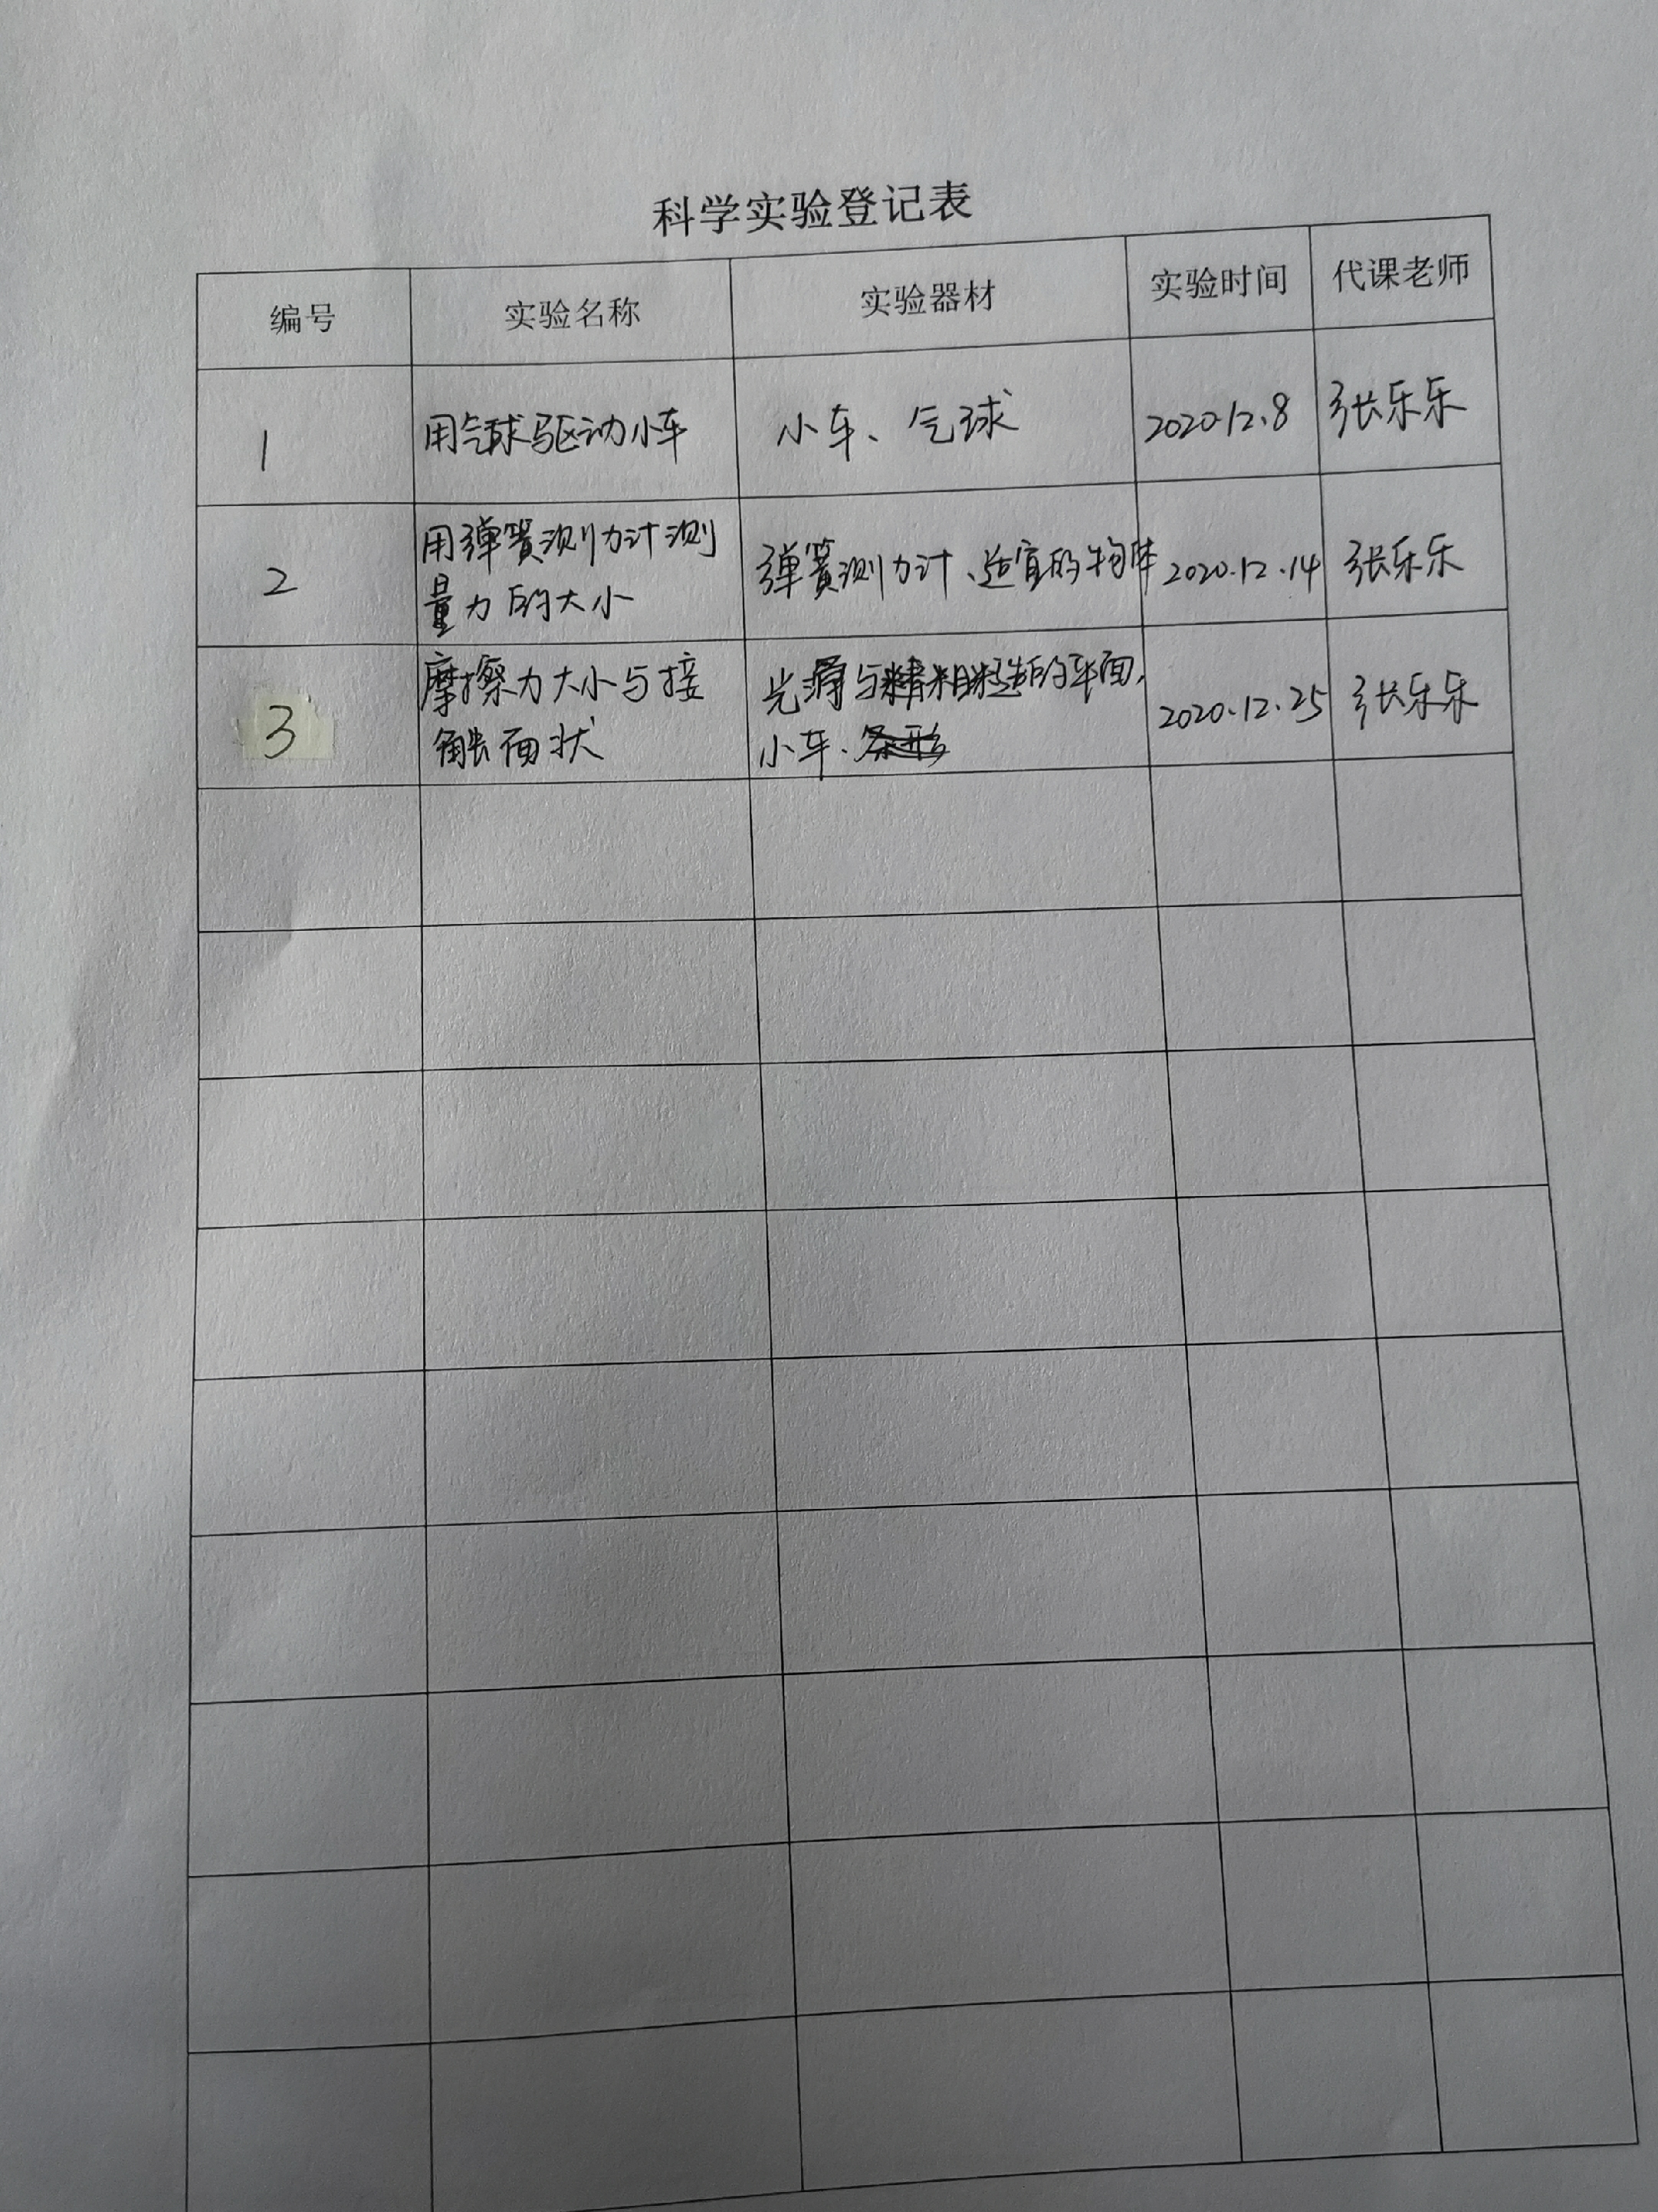 科学实验登记表
编号 实验名称 实验器材 实验时间 代课老师
1 用气球驱动小车 小车、气球 2020.12.8 张乐乐
用弹簧测力计测
量力的大小
2 弹簧测力计、适宜的物体 2020.12.14 张乐乐
摩擦力大小与接
触面状
光滑与粗糙的平面,
小车、
3 2020.12.25 张乐乐